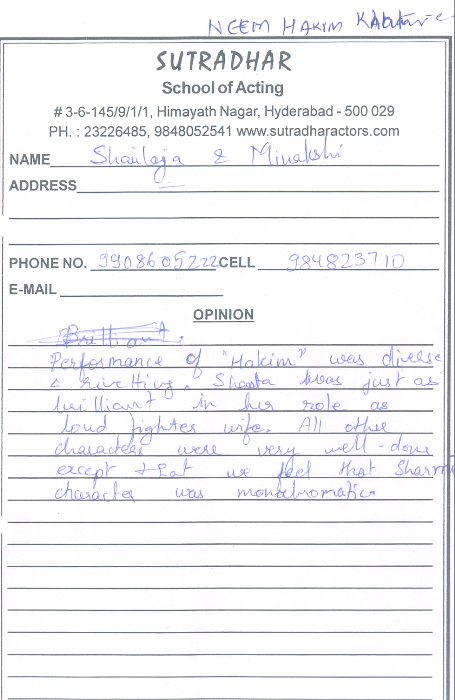 NEEM HAKIM
SUTRADHAR
School of Acting
# 3-6-145/9/1/1, Himayath Nagar, Hyderabad - 500 029
PH. : 23226485, 9848052541 www.sutradharactors.com
NAME Shailaja & Minakshi
ADDRESS
PHONE NO. 9908605222 CELL 984823710
E-MAIL
OPINION
Brilliant.
Performance of "Hakim" was diverse
& rivetting. Shanta was just as
brilliant in her role as
loud fighter wife. All other
characters were very well-done
except that we feel that
character was monochromatic